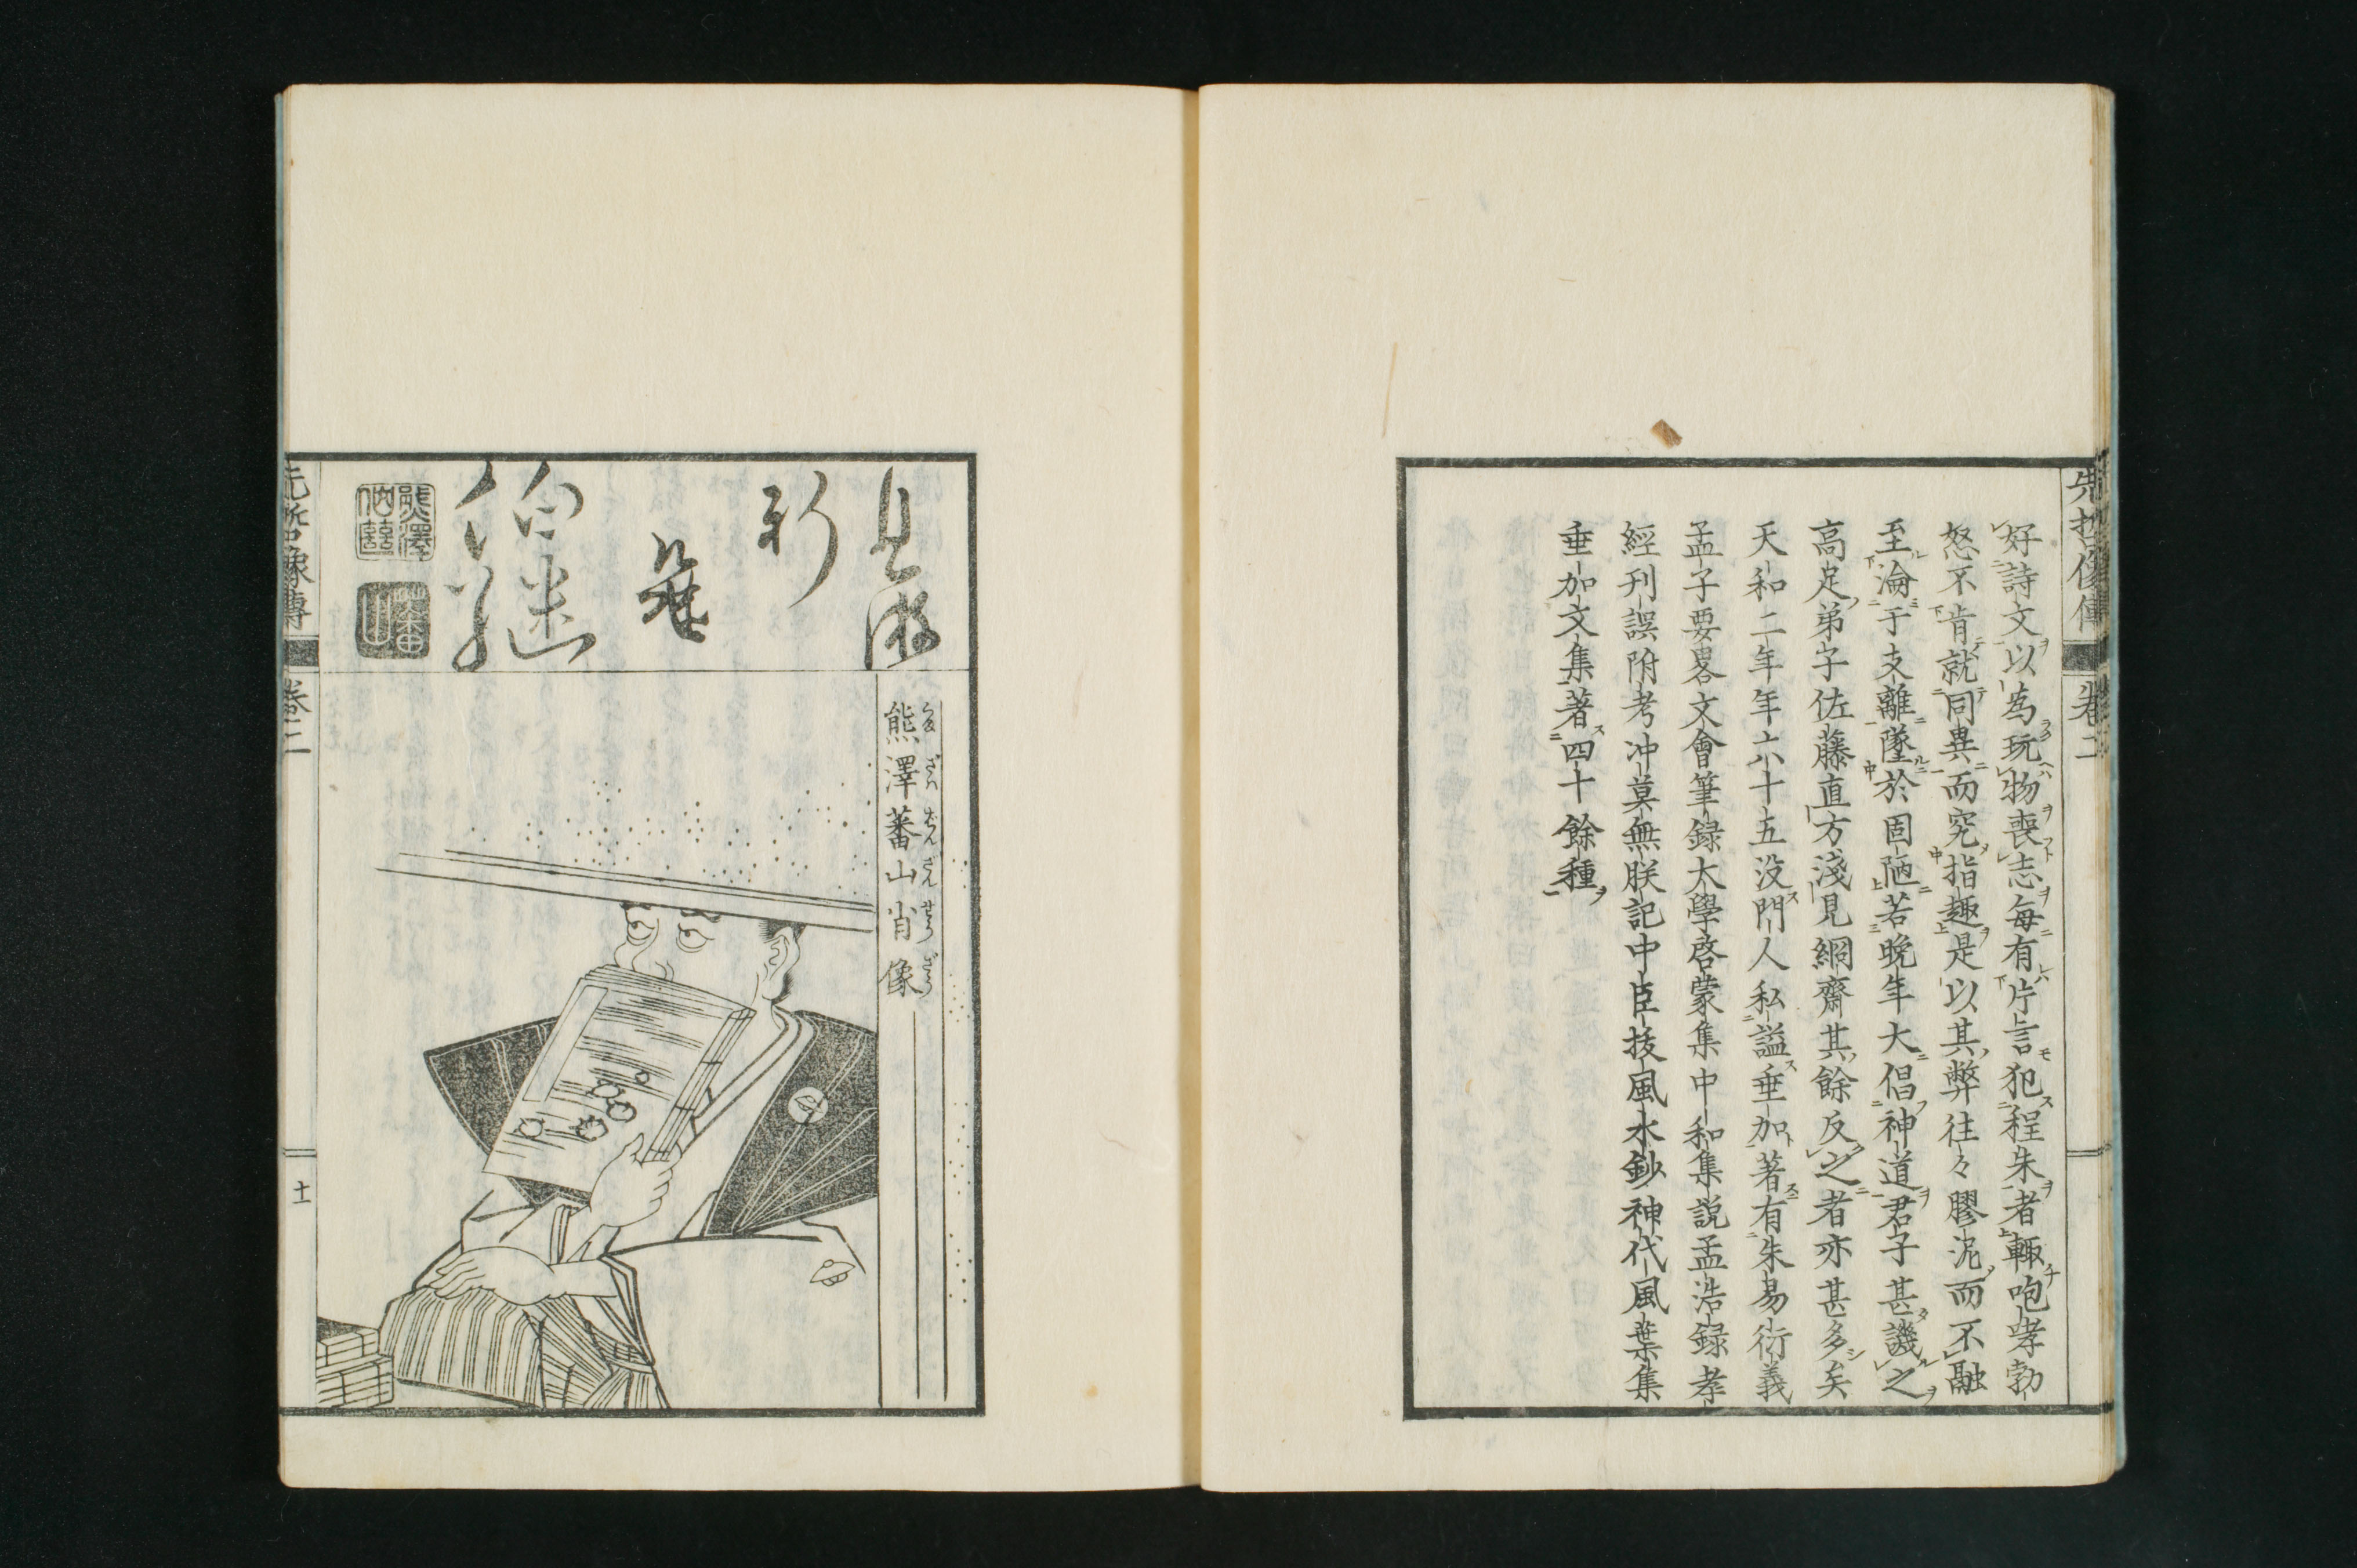 先哲像傳 卷二
好詩文以為玩物喪志每有片言犯程朱者輙咆哮勃
怒不肯就同異而究指趣是以其弊往々膠泥而不融
至淪于支離墜於固陋若晩年大倡神道君子甚譏之
高足弟子佐藤直方淺見絅齋其餘反之者亦甚多矣
天和二年年六十五没門人私謚垂加著有朱易衍義
孟子要畧文會筆録大學啓蒙集中和集説孟浩録孝
經刊誤附考冲莫無朕記中臣抜風水鈔神代風葉集
垂加文集著四十餘種
熊澤蕃山肖像
熊澤伯繼
蕃山
先哲像傳 卷二 十一